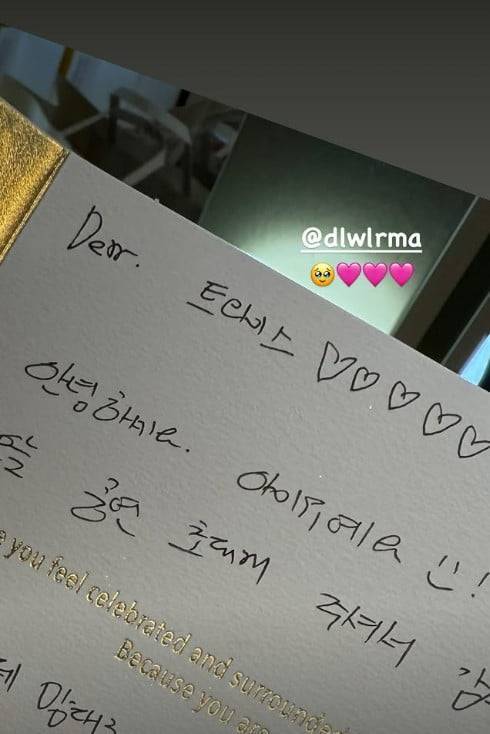 @dlwlrma
🥹🩷🩷🩷
Dear. ♡♡♡♡♡
안녕하세요. 아이유예요 :)!
공연 초대해 주셔서 감
you feel celebrated and surrounded
Because you are